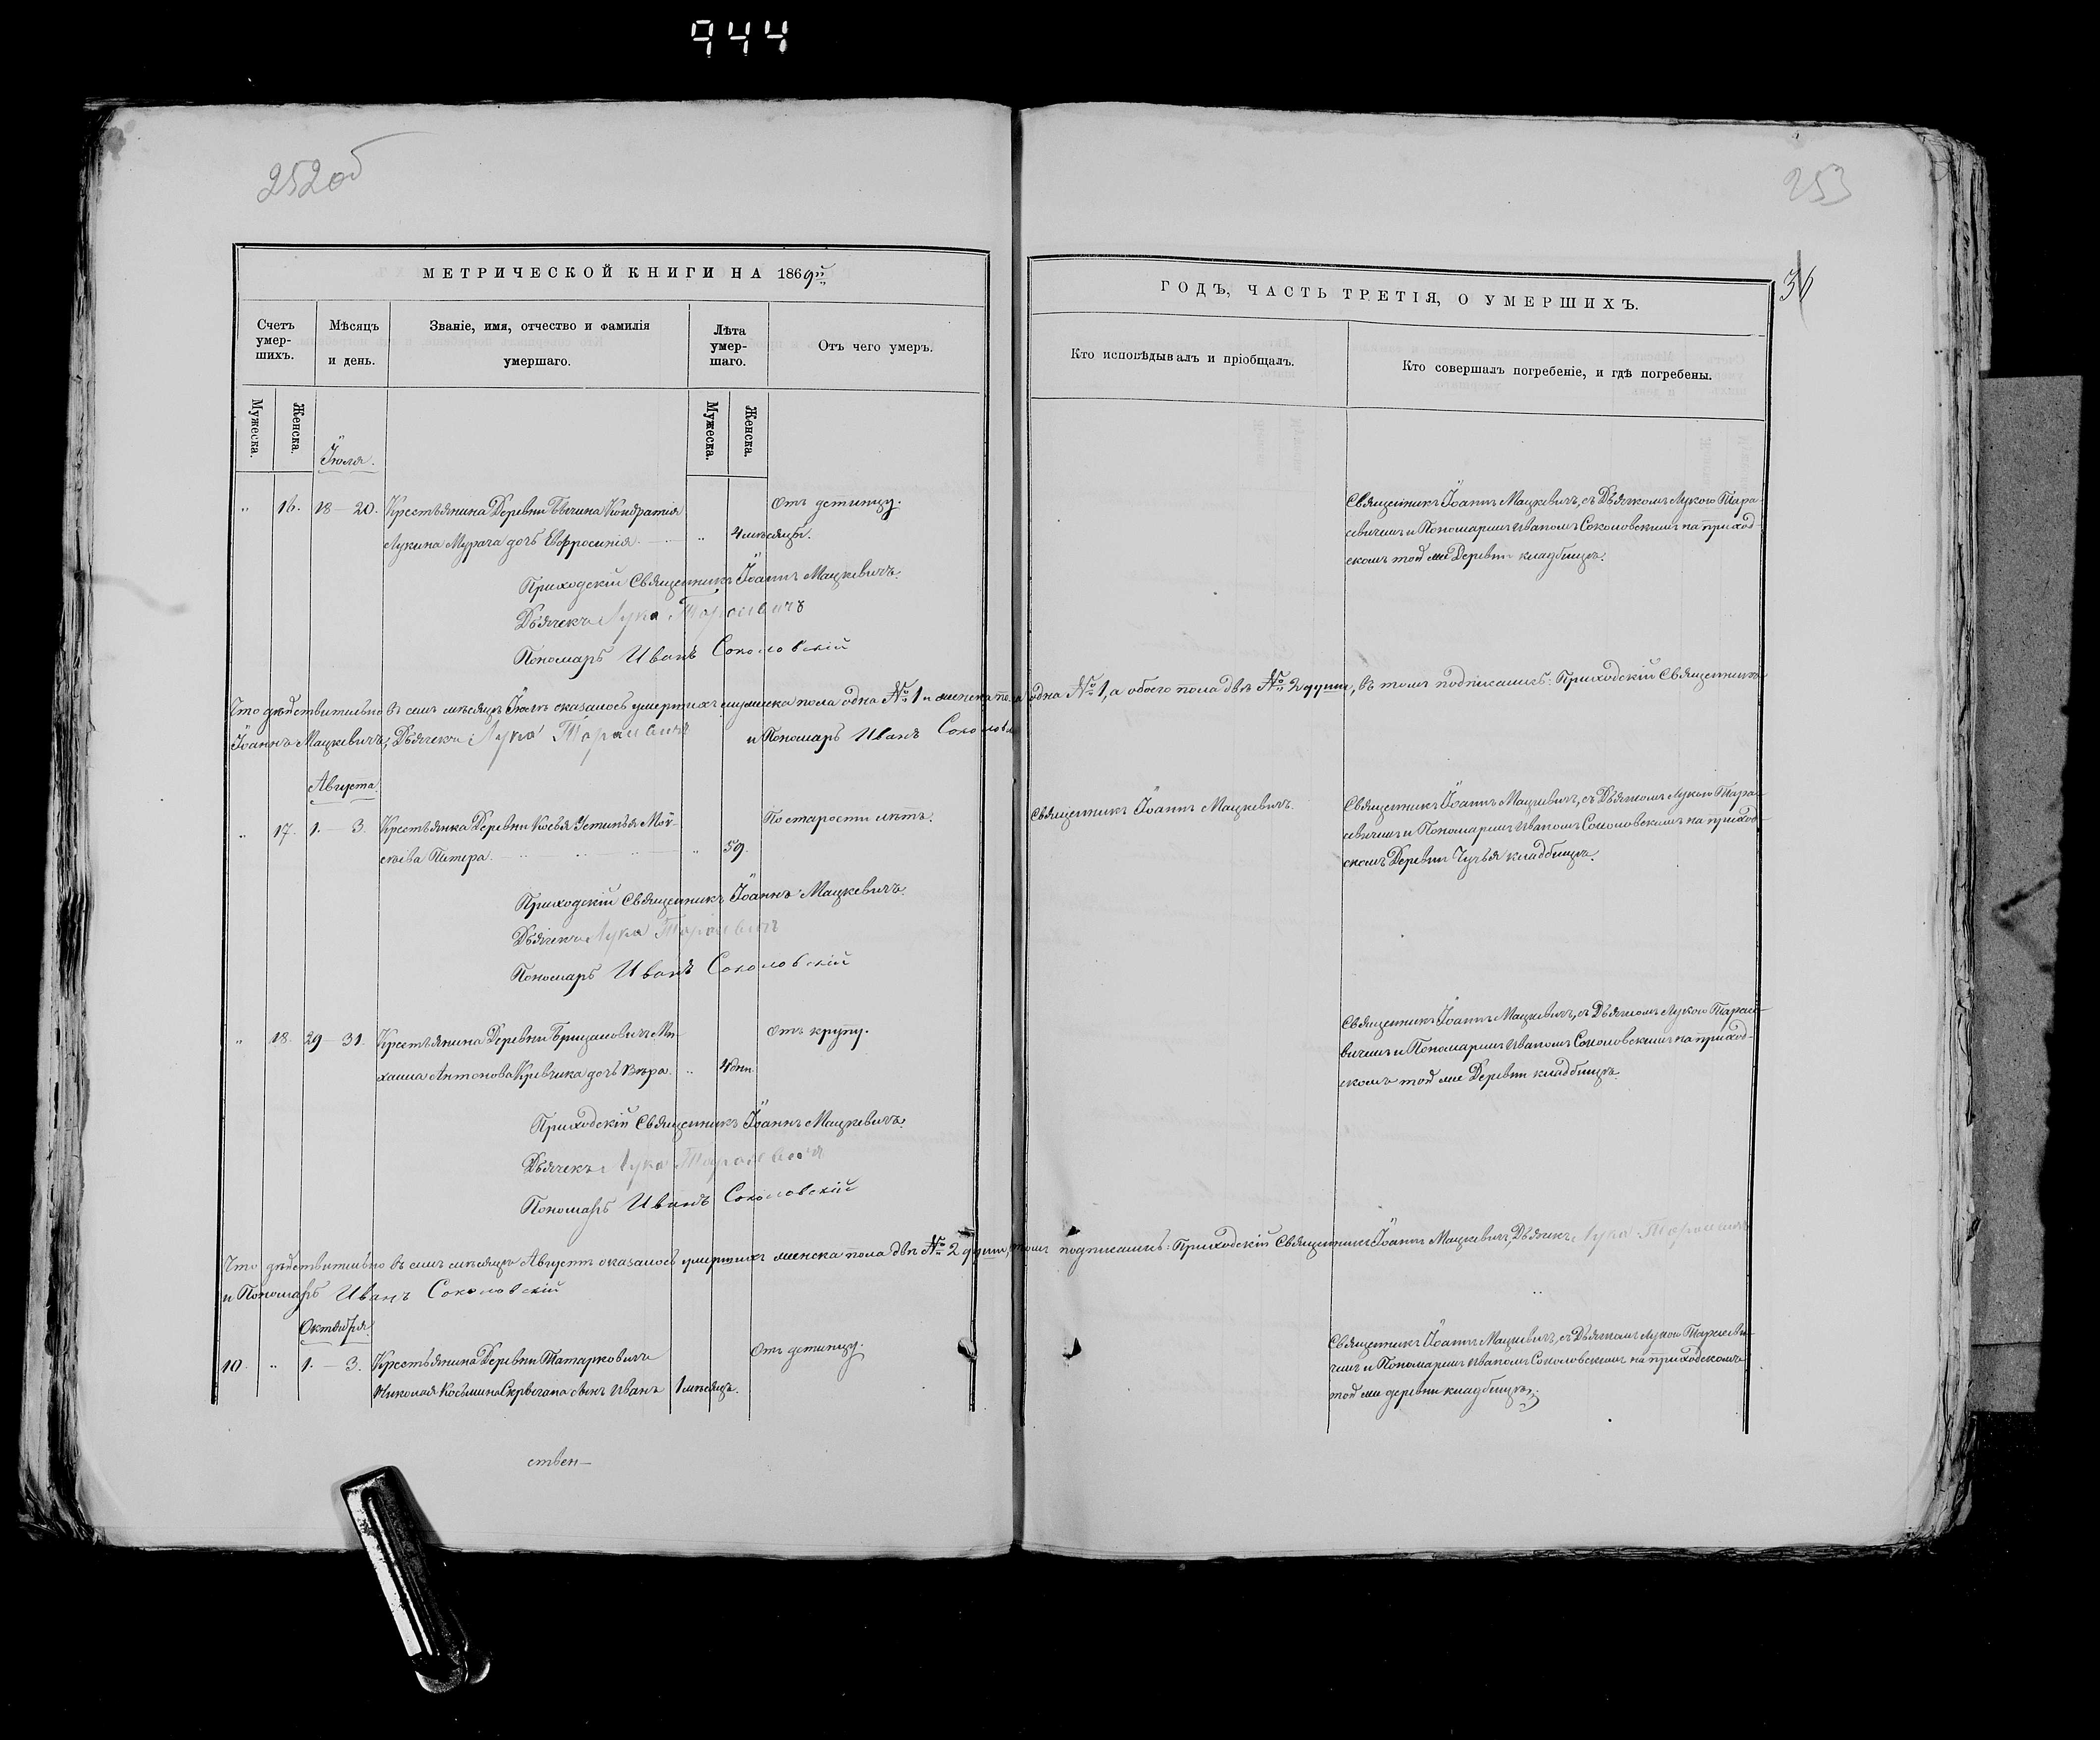 944
252об
253
МЕТРИЧЕСКОЙ КНИГИ НА 1869й
ГОДЪ, ЧАСТЬ ТРЕТІЯ, О УМЕРШИХЪ.
36
Счетъ умер-
шихъ.
Мѣсяцъ
и день.
Званіе, имя, отчество и фамилія
умершаго.
Лѣта
умер-
шаго.
Отъ чего умеръ.
Кто исповѣдывалъ и пріобщалъ.
Кто совершалъ погребеніе, и гдѣ погребены.
Мужеска.
Женска.
Мужеска.
Женска.
Іюля.
„ 16. 18 — 20. Крестьянина Деревни Кондратія
Лукина Мурача дочь Евфросинія. „ 4 мѣсяцы.
Отъ детинцу.
Священникъ Іоаннъ Мацкевичъ, съ Дьячкомъ Лукою Тара-
севичемъ и Пономаремъ Иваномъ Соколовскимъ на приход-
скомъ той же Деревни кладбищѣ.
Приходскій Священникъ Іоаннъ Мацкевичъ.
Дьячекъ Лука Тарасевичъ
Пономарь Иванъ Соколовскій
Что дѣйствительно въ семъ мѣсяцѣ Іюлѣ оказалось умершихъ мужеска пола одна № 1 и женска пола одна № 1, а обоего пола двѣ № 2 души, въ томъ подписались: Приходскій Священникъ
Іоаннъ Мацкевичъ, Дьячекъ Лука Тарасевичъ и Пономарь Иванъ Соколовскій
Августа.
„ 17. 1. — 3. Крестьянка Деревни Устинья Мой-
сѣева Питера. „ 59.
По старости лѣтъ.
Священникъ Іоаннъ Мацкевичъ.
Священникъ Іоаннъ Мацкевичъ, съ Дьячкомъ Лукою Тара-
севичемъ и Пономаремъ Иваномъ Соколовскимъ на приход-
скомъ Деревни Чучья кладбищѣ.
Приходскій Священникъ Іоаннъ Мацкевичъ.
Дьячекъ Лука Тарасевичъ
Пономарь Иванъ Соколовскій
„ 18. 29 — 31. Крестьянина Деревни Брицаловичъ Ми-
хаила Антонова Кривчика дочь Вѣра. „ 4 дни
Отъ крупу.
Священникъ Іоаннъ Мацкевичъ, съ Дьячкомъ Лукою Тарасе-
вичемъ и Пономаремъ Иваномъ Соколовскимъ на приход-
скомъ той же Деревни кладбищѣ.
Приходскій Священникъ Іоаннъ Мацкевичъ.
Дьячекъ Лука Тарасевичъ
Пономарь Иванъ Соколовскій
Что дѣйствительно въ семъ мѣсяцѣ Августѣ оказалось умершихъ женска пола двѣ № 2 души, томъ подписались: Приходскій Священникъ Іоаннъ Мацкевичъ, Дьячекъ Лука Тарасевичъ
и Пономарь Иванъ Соколовскій
Октября.
10. „ 1. — 3. Крестьянина Деревни Татарковичъ
Николая Косьмина сынъ Иванъ 1 мѣсяцъ.
Отъ детинцу.
Священникъ Іоаннъ Мацкевичъ, съ Дьячкомъ Лукою Тарасеви-
чемъ и Пономаремъ Иваномъ Соколовскимъ на приходскомъ
той же деревни кладбищѣ.
ствен—